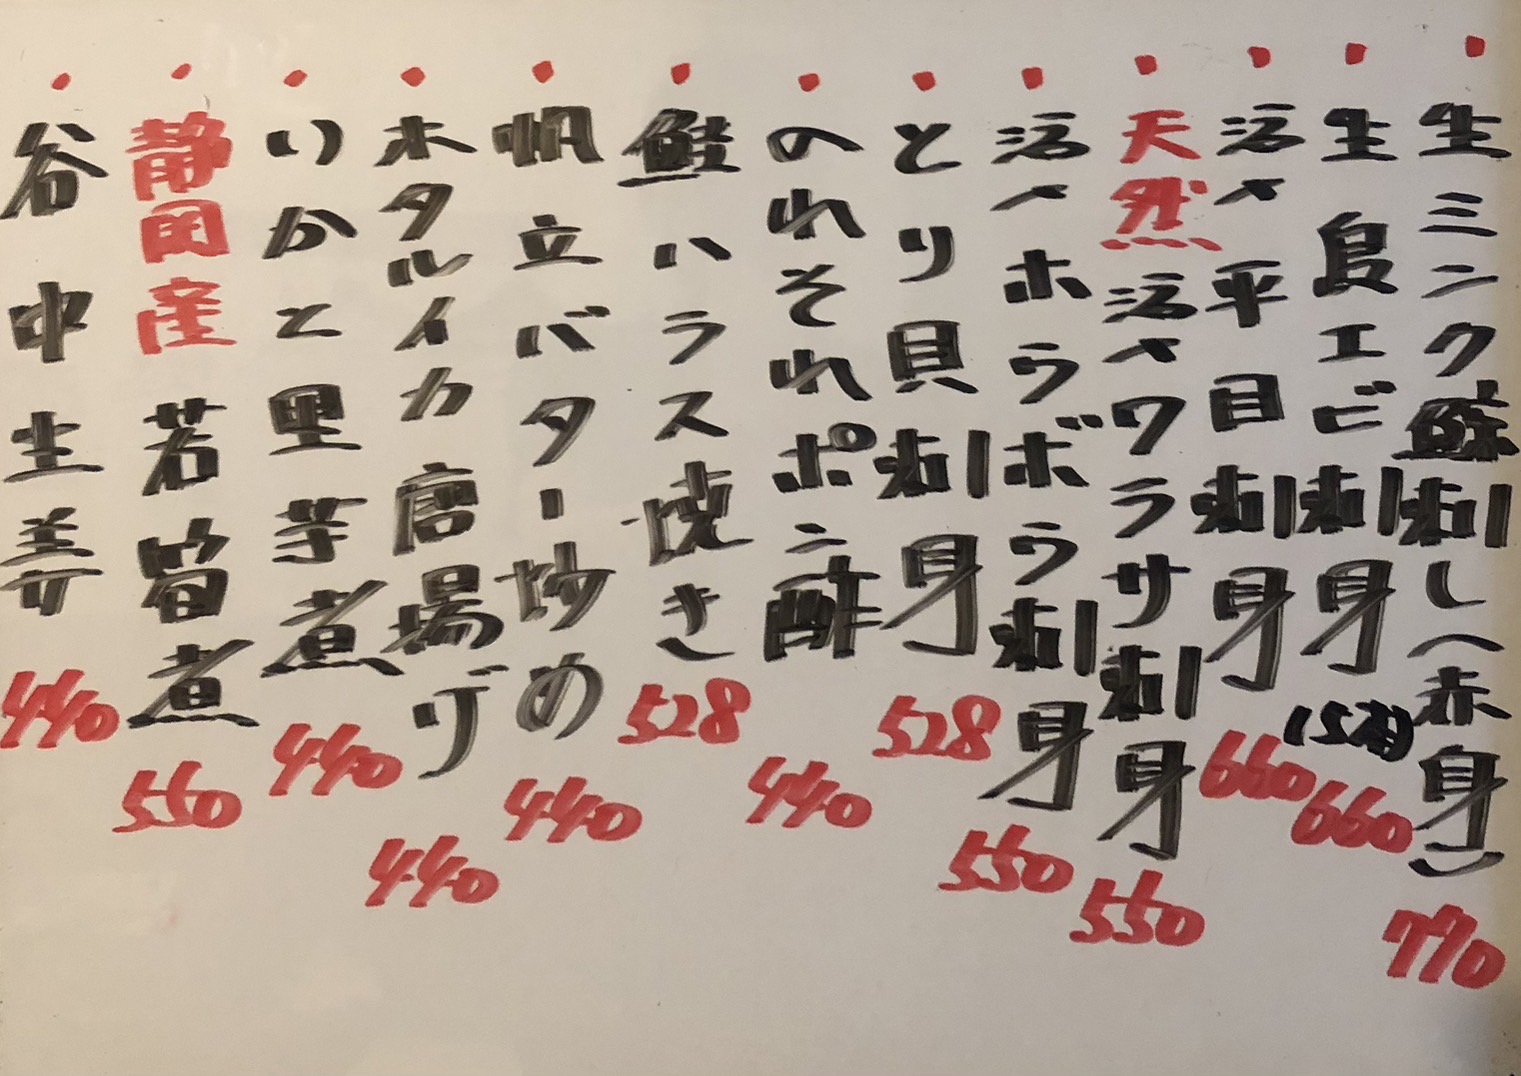 ・生ミンク鯨刺し(赤身) 770
・生島エビ刺身 660
・活〆平目刺身 660
・天然活〆ワラサ刺身 550
・活〆ホウボウ刺身 550
・とり貝刺身 528
・のれそれポン酢 440
・鮭ハラス焼き 528
・帆立バター炒め 440
・ホタルイカ唐揚げ 440
・いかと里芋煮 440
・静岡産若筍煮 550
・谷中生姜 440